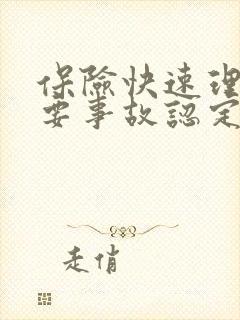 保險快速理
要事故認定
走俏